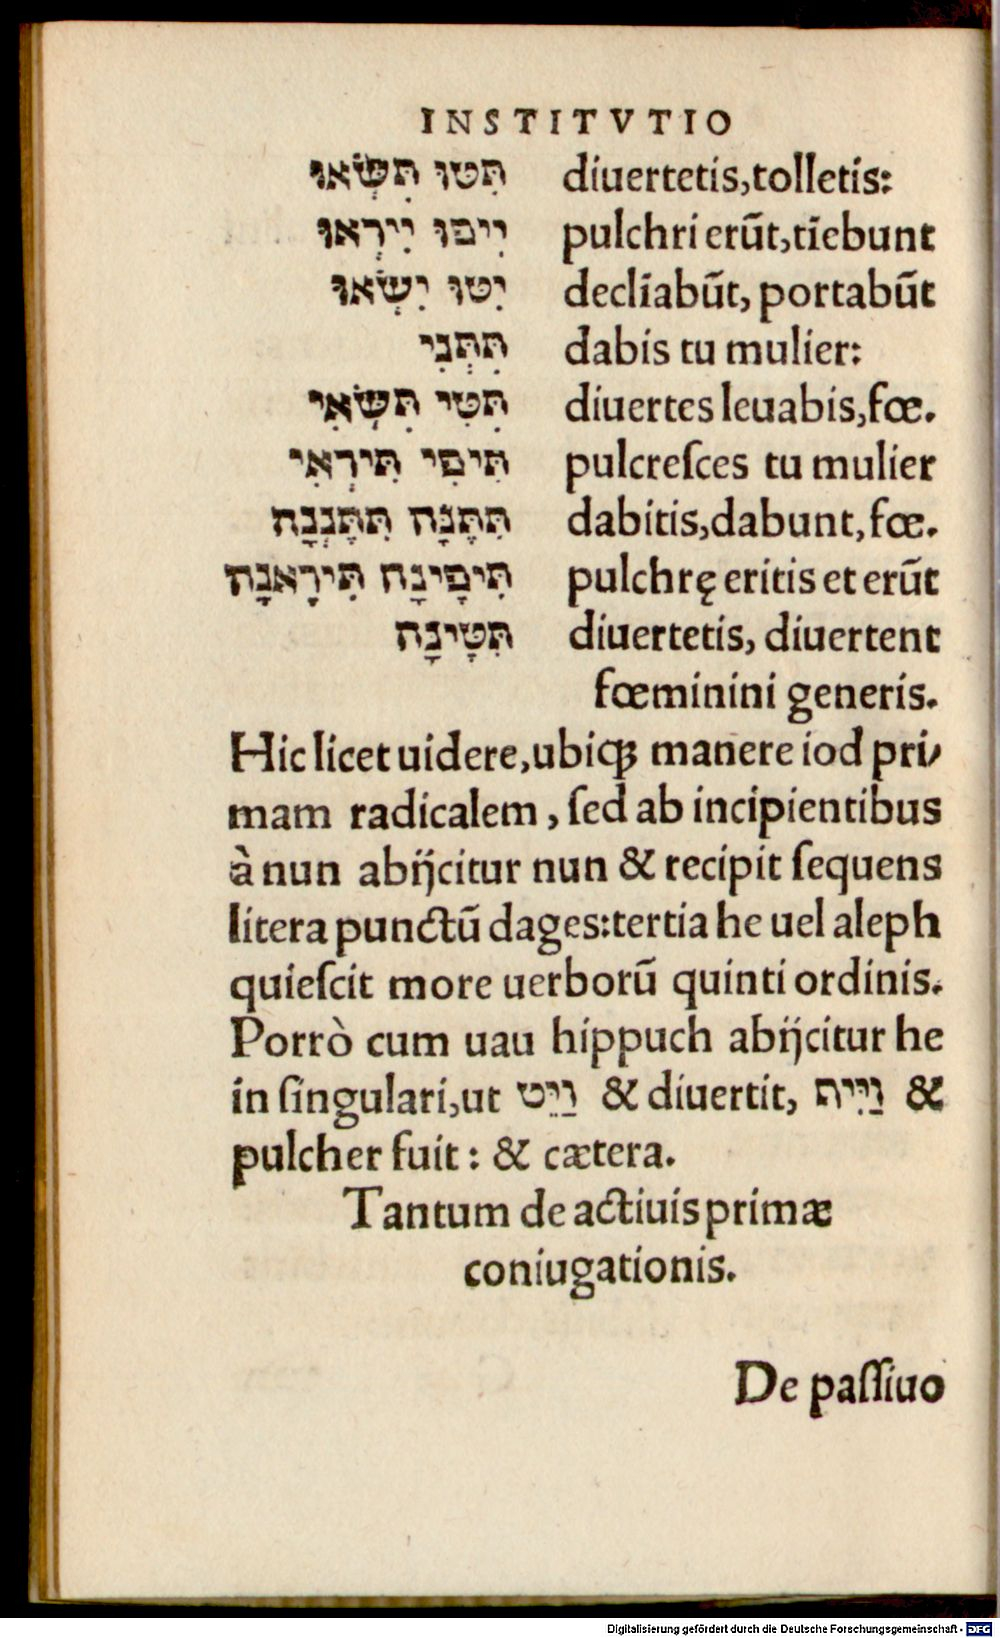 INSTITVTIO
תִּטּוּ תִּשְּׂאוּ diuertetis,tolletis:
יִיפוּ יִירְאוּ pulchri erūt,tīebunt
יִטּוּ יִשְּׂאוּ declīabūt, portabūt
תִּתְּנִי dabis tu mulier:
תִּטִּי תִּשְּׂאִי diuertes leuabis,fœ.
תִּיפִי תִּירְאִי pulcreſces tu mulier
תִּתֶּנָּה תִּתֶּנְנָה dabitis,dabunt,fœ.
תִּיפֶינָה תִּירֶאנָה pulchrę eritis et erūt
תִּטֶּינָה diuertetis, diuertent
fœminini generis.
Hic licet uidere,ubiq; manere iod pri-
mam radicalem, ſed ab incipientibus
à nun abijcitur nun & recipit ſequens
litera punctū dages:tertia he uel aleph
quieſcit more uerborū quinti ordinis.
Porrò cum uau hippuch abijcitur he
in ſingulari,ut וַיֵּט & diuertit, וַיִּיף &
pulcher fuit: & cætera.
Tantum de actiuis primæ
coniugationis.
De paſſiuo
Digitalisierung gefördert durch die Deutsche Forschungsgemeinschaft - DFG